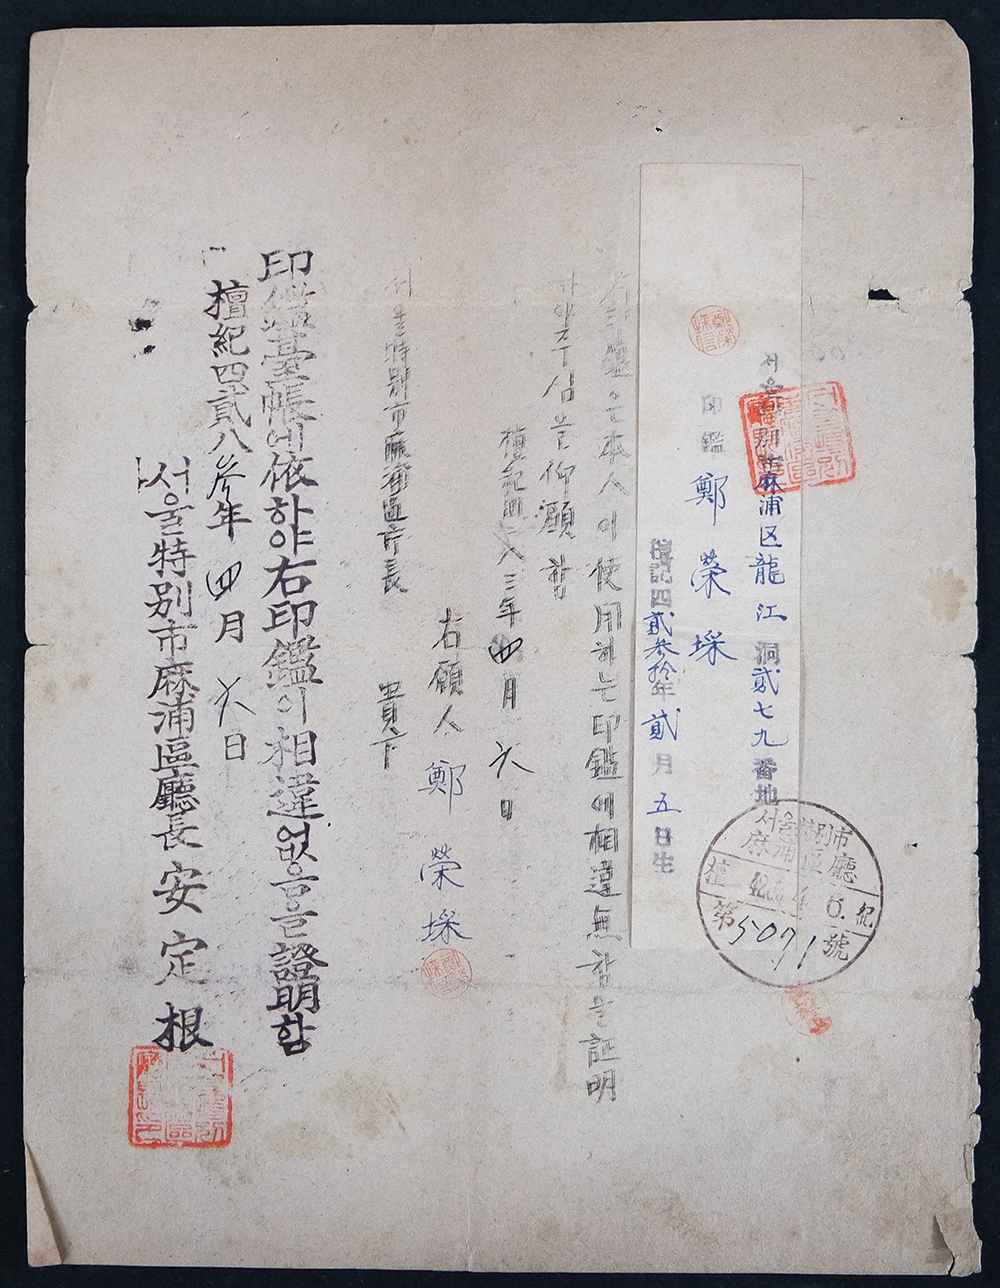 서울 麻浦区 龍江 洞 貳七九 番地
印鑑 鄭 榮 埰
檀記四貳參拾年 貳 月 五 日生
서울特別市
麻浦區廳
檀 6. 紀
第5091號
右印鑑은本人이使用하는印鑑에相違無함을証明
하야주심을仰願함
檀紀四二八三年 四 月 六 日
右願人 鄭 榮 埰
서울特別市麻浦區廳長 貴下
印鑑臺帳에依하야右印鑑이相違없음을證明함
檀紀四貳八參年 四 月 六 日
서울特別市麻浦區廳長 安 定 根